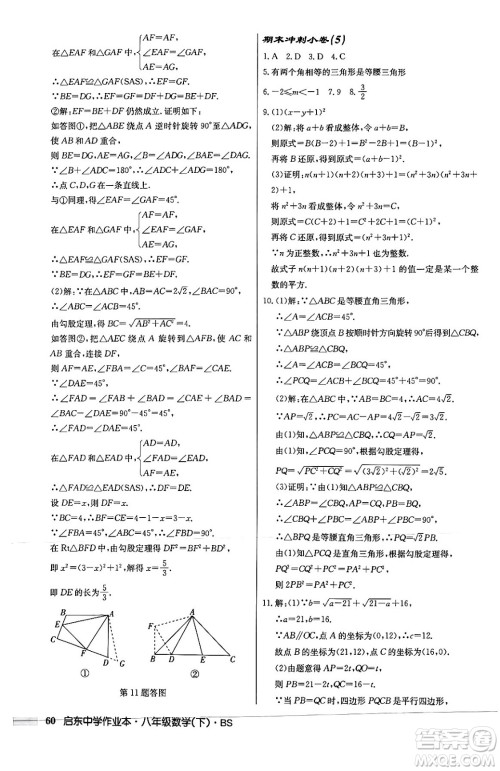 AF=AF,
在△AEF和△AGF中, ∠EAF=∠GAF,
AE=AG,
∴△AEF≌△AGF(SAS). ∴EF=GF.
∵BE=DG, ∴EF=GF=BE+DF.
②BE+DF=EF仍然成立. 证明如下:
如答图①, 把△ABE绕点A逆时针旋转90°至△ADG, 使AB
与AD重合,
则△ABE≌△ADG.
∴∠ADG=∠B, ∠BAE=∠DAG, AE=AG, BE=DG.
∵∠B+∠ADC=180°, ∴∠ADC+∠ADG=180°.
∴点C,D,G在一条直线上.
与①同理, 得∠EAF=∠GAF=45°.
AF=AF,
在△EAF和△GAF中, ∠EAF=∠GAF,
AE=AG,
∴△EAF≌△GAF(SAS). ∴EF=GF.
∵BE=DG, ∴EF=GF=BE+DF.
(2)解: ∵在△ABC中, AB=AC=2√2, ∠BAC=90°,
∴∠ABC=∠C=45°.
由勾股定理得BC=√(AB²+AC²)=4.
如答图②, 把△AEC绕点A旋转至△AFB的位置, 使AC和
AB重合, 连接DF.
则AF=AE, ∠FBA=∠C=45°, ∠BAF=∠CAE.
∵∠DAE=45°,
∴∠FAD=∠FAB+∠BAD=∠CAE+∠BAD=∠BAC-
∠DAE=90°-45°=45°. ∴∠FAD=∠DAE=45°.
AD=AD,
在△FAD和△EAD中, ∠FAD=∠EAD,
AF=AE,
∴△FAD≌△EAD(SAS). ∴DF=DE.
设DE=x, 则DF=x.
∵BC=4, ∴BF=CE=4-1-x=3-x.
∵∠FBA=45°, ∠ABC=45°, ∴∠FBD=90°.
在Rt△BDF中, 由勾股定理得DF²=BF²+BD²,
即x²=(3-x)²+1², 解得x=5/3.
即DE的长为5/3.
①
②
第11题答图
期末冲刺小卷(5)
1. A 2. D 3. D 4. C
5. 有两个角相等的三角形是等腰三角形
6. -2≤m<-1 7. 9 8. 3/2
9. (1)(x-y+1)²
(2)解: 将a+b看成整体, 令a+b=B,
则原式=B(B-2)+1=B²-2B+1=(B-1)²,
再将B还原, 得到原式=(a+b-1)².
(3)证明: (n+1)(n+2)(n²+3n)+1=(n²+3n)(n²+3n+
2)+1,
将n²+3n看成整体, 令n²+3n=C,
则原式=C(C+2)+1=C²+2C+1=(C+1)²,
再将C还原, 得到原式=(n²+3n+1)².
∵n为正整数,
∴n²+3n+1为正整数.
故式子(n+1)(n+2)(n²+3n)+1的值一定是某一个整
数的平方.
10. (1)解: ∵△ABC是等腰直角三角形,
∴∠A=∠ACB=45°.
∵△ABP绕顶点B按顺时针方向旋转90°后得到△CBQ,
∴△ABP≌△CBQ.
∴∠A=∠BCQ=45°.
∴∠PCQ=∠ACB+∠BCQ=45°+45°=90°.
(2)解: ∵AB=4, ∴AC=4√2.
∵AP=√2, ∴PC=AC-AP=4√2-√2=3√2.
由(1)知, △ABP≌△CBQ, ∴CQ=AP=√2.
由(1)知∠PCQ=90°, 根据勾股定理, 得
PQ=√(PC²+CQ²)=√((3√2)²+(√2)²)=2√5.
(3)证明: 由(1)知△ABP≌△CBQ,
∴∠ABP=∠CBQ, AP=CQ, PB=BQ.
∴∠CBQ+∠PBC=∠ABP+∠PBC=90°.
∴△BPQ是等腰直角三角形, △PCQ是直角三角形.
∴PQ=√2PB.
∵AP=CQ, ∴PQ²=PC²+CQ²=PA²+PC².
则2PB²=PA²+PC².
11. 解: (1)∵b=√(a-21)+√(21-a)+16,
∴a=21, b=16.
∵AB∥OC, A(0,12), B(21,c), ∴c=12.
故点B(21,12), 点C(16,0).
(2)由题意得AP=2t, QO=t, 则PB=21-2t, QC=16-t.
∵当PB=QC时, 四边形PQCB是平行四边形,
60 启东中学作业本·八年级数学(下)·BS